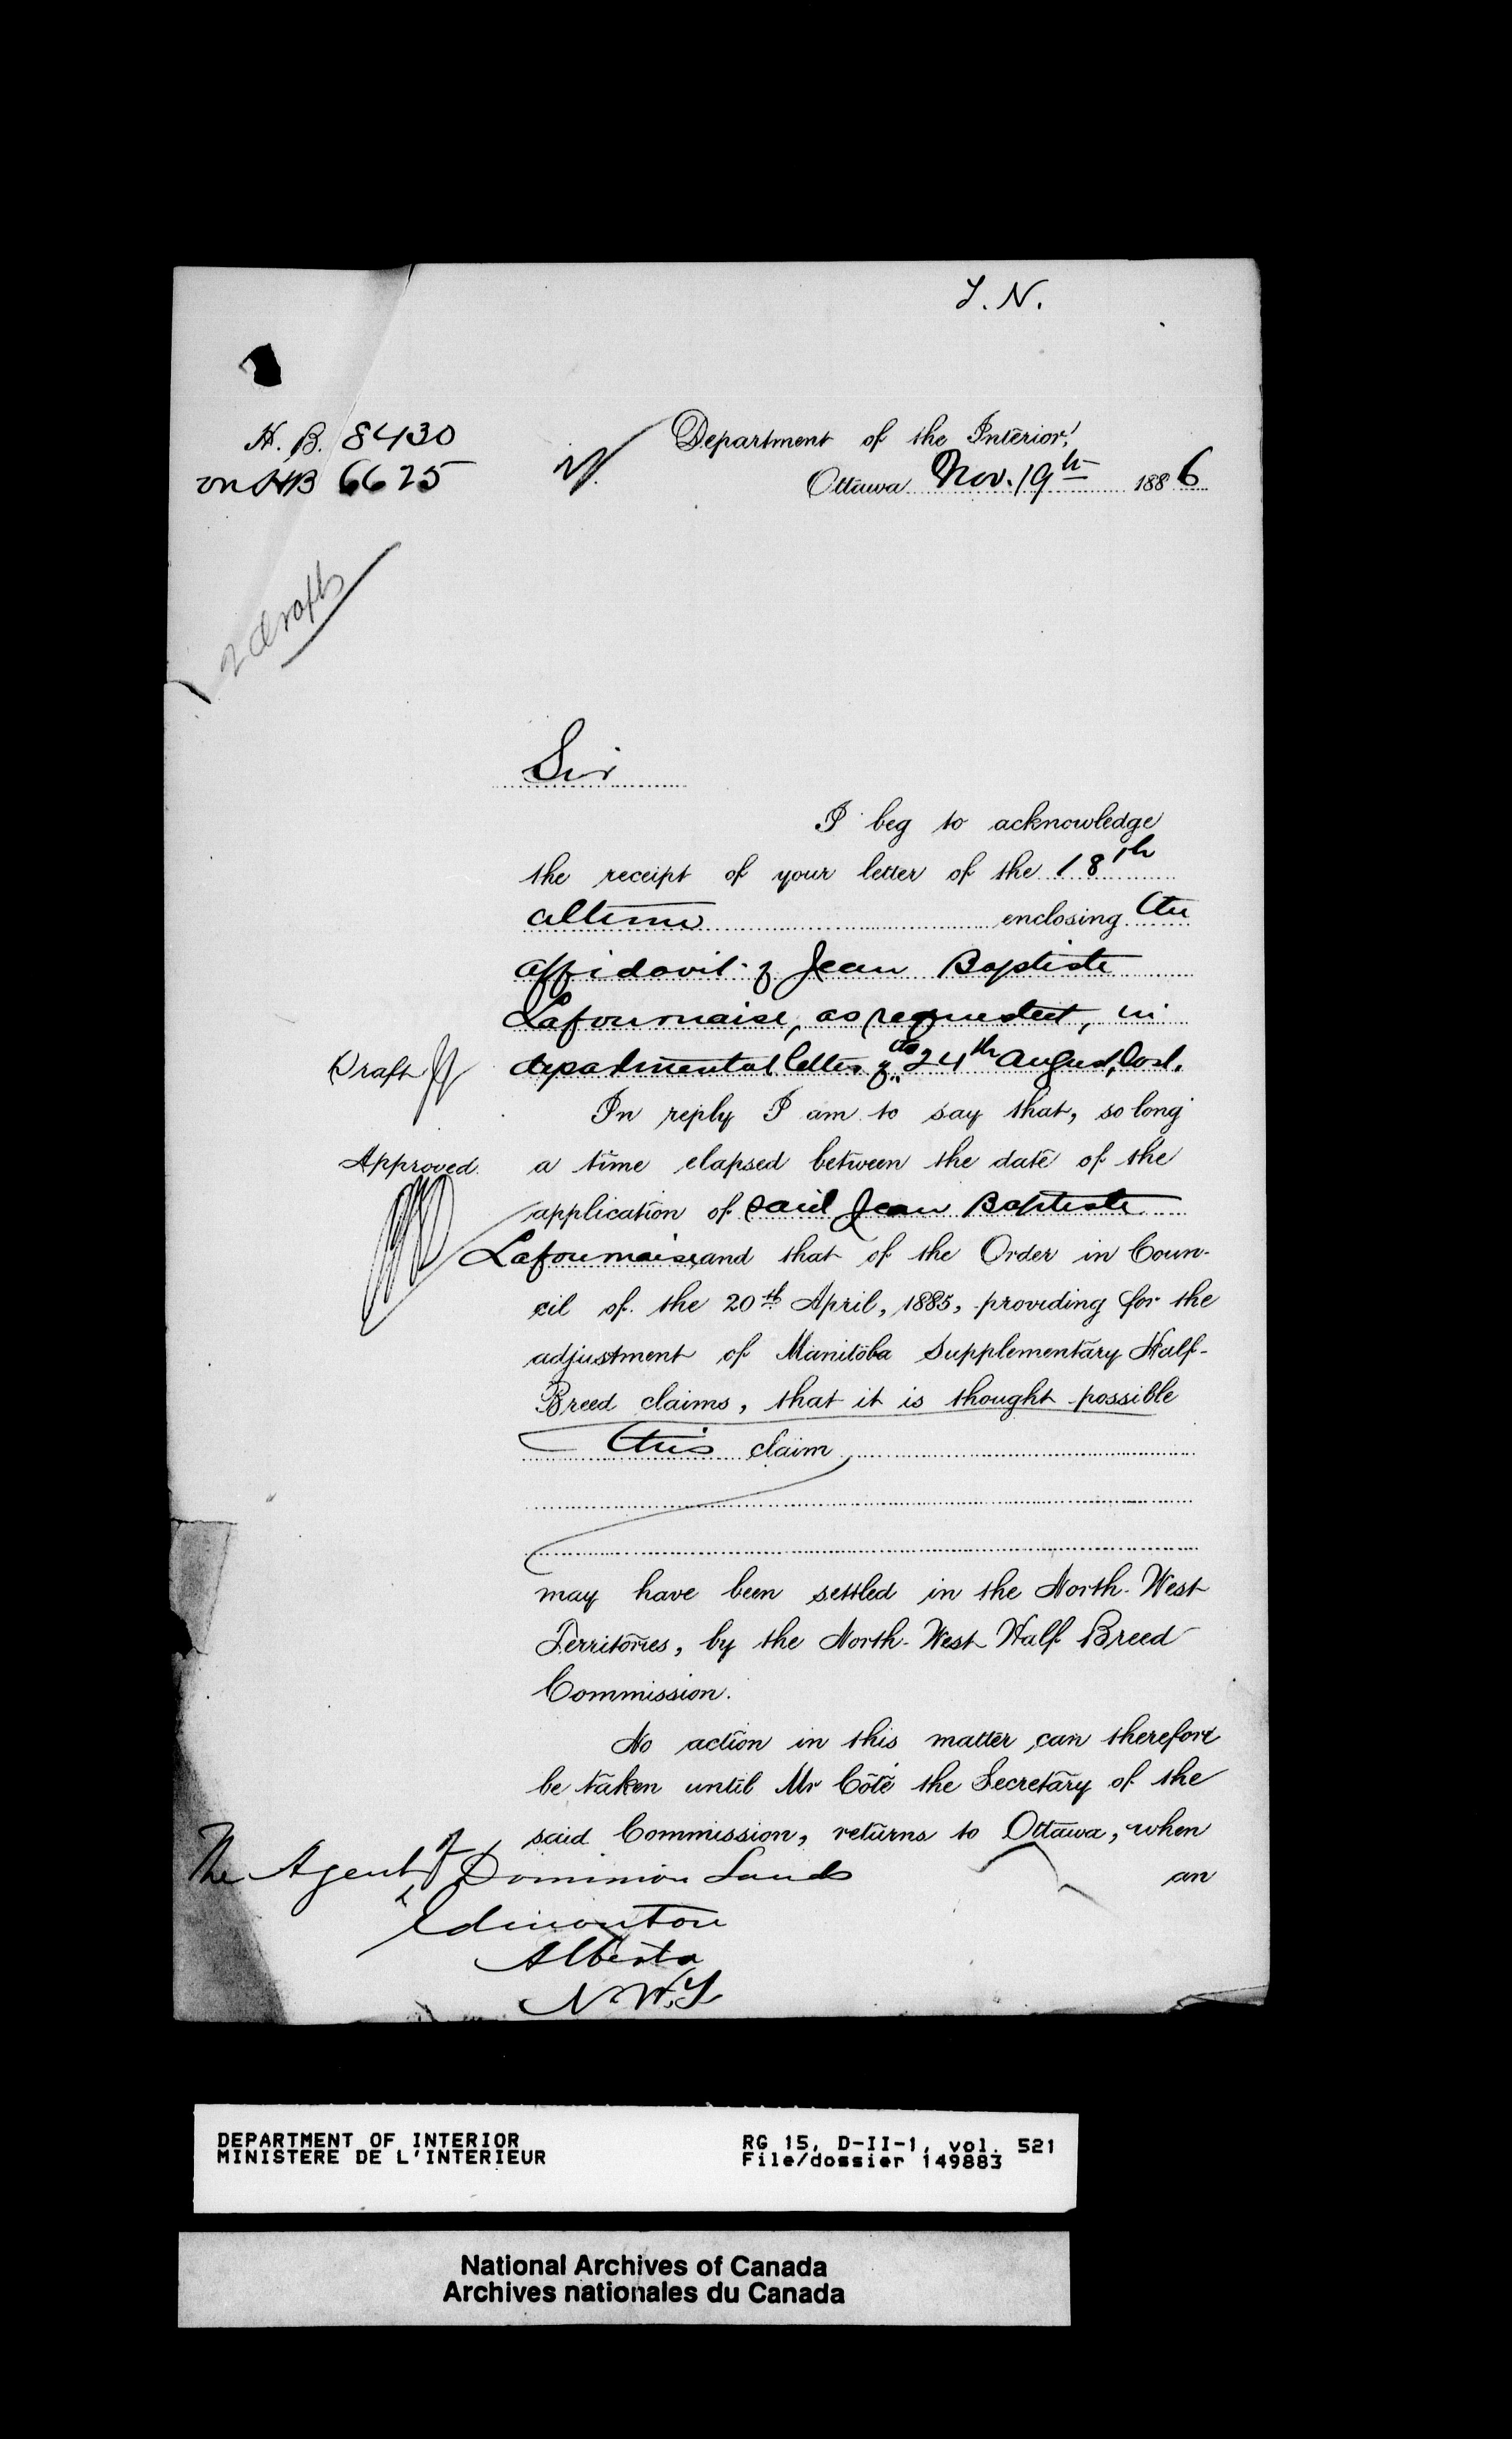 T. N.
H. B. 8430
on HB 6625
Department of the Interior,
Ottawa Nov. 19th 1886
2 drafts
Sir
I beg to acknowledge
the receipt of your letter of the 18th
ultimo enclosing the
affidavit of Jean Baptiste
Lafournaise, as requested, in
Draft
departmental letter of the 24th August, last.
In reply I am to say that, so long
Approved.
a time elapsed between the date of the
application of said Jean Baptiste
Lafournaise and that of the Order in Coun-
cil of the 20th April, 1885, providing for the
adjustment of Manitoba Supplementary Half-
Breed claims, that it is thought possible
this claim
may have been settled in the North-West
Territories, by the North-West Half Breed
Commission.
No action in this matter can therefore
be taken until Mr Côté the Secretary of the
said Commission, returns to Ottawa, when
an
The Agent of Dominion Lands
Edmonton
Alberta
N.W.T
DEPARTMENT OF INTERIOR
MINISTERE DE L'INTERIEUR
RG 15, D-II-1, vol. 521
File/dossier 149883
National Archives of Canada
Archives nationales du Canada